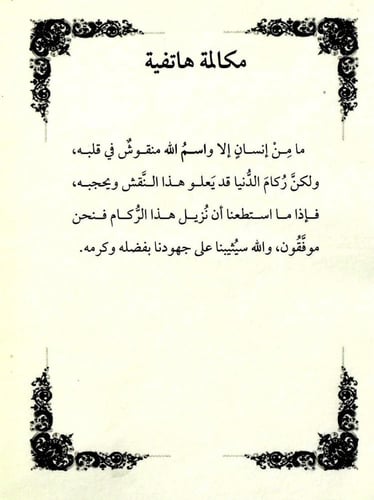 مكالمة هاتفية
ما مِنْ إنسانٍ إلا واسمُ الله منقوشٌ في قلبه،
ولكنَّ رُكامَ الدُّنيا قد يَعلو هذا النَّقش ويحجبه،
فإذا ما استطعنا أن نُزيل هذا الرُّكام فنحن
موفَّقُون، والله سيُثيبنا على جهودنا بفضله وكرمه.